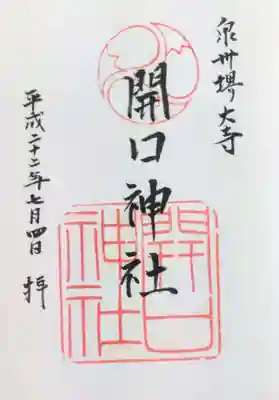 泉州堺大寺
開口神社
開口神社
平成二十二年七月四日 拝